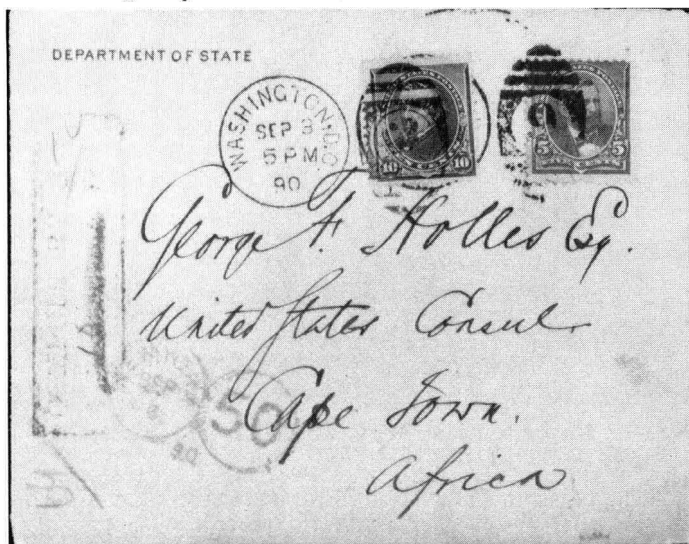 DEPARTMENT OF STATE
WASHINGTON, D.C.
SEP 3
5 PM
90
10 10
5 5
George F. Holles Esq.
United States Consul
Cape Town.
Africa
50
90